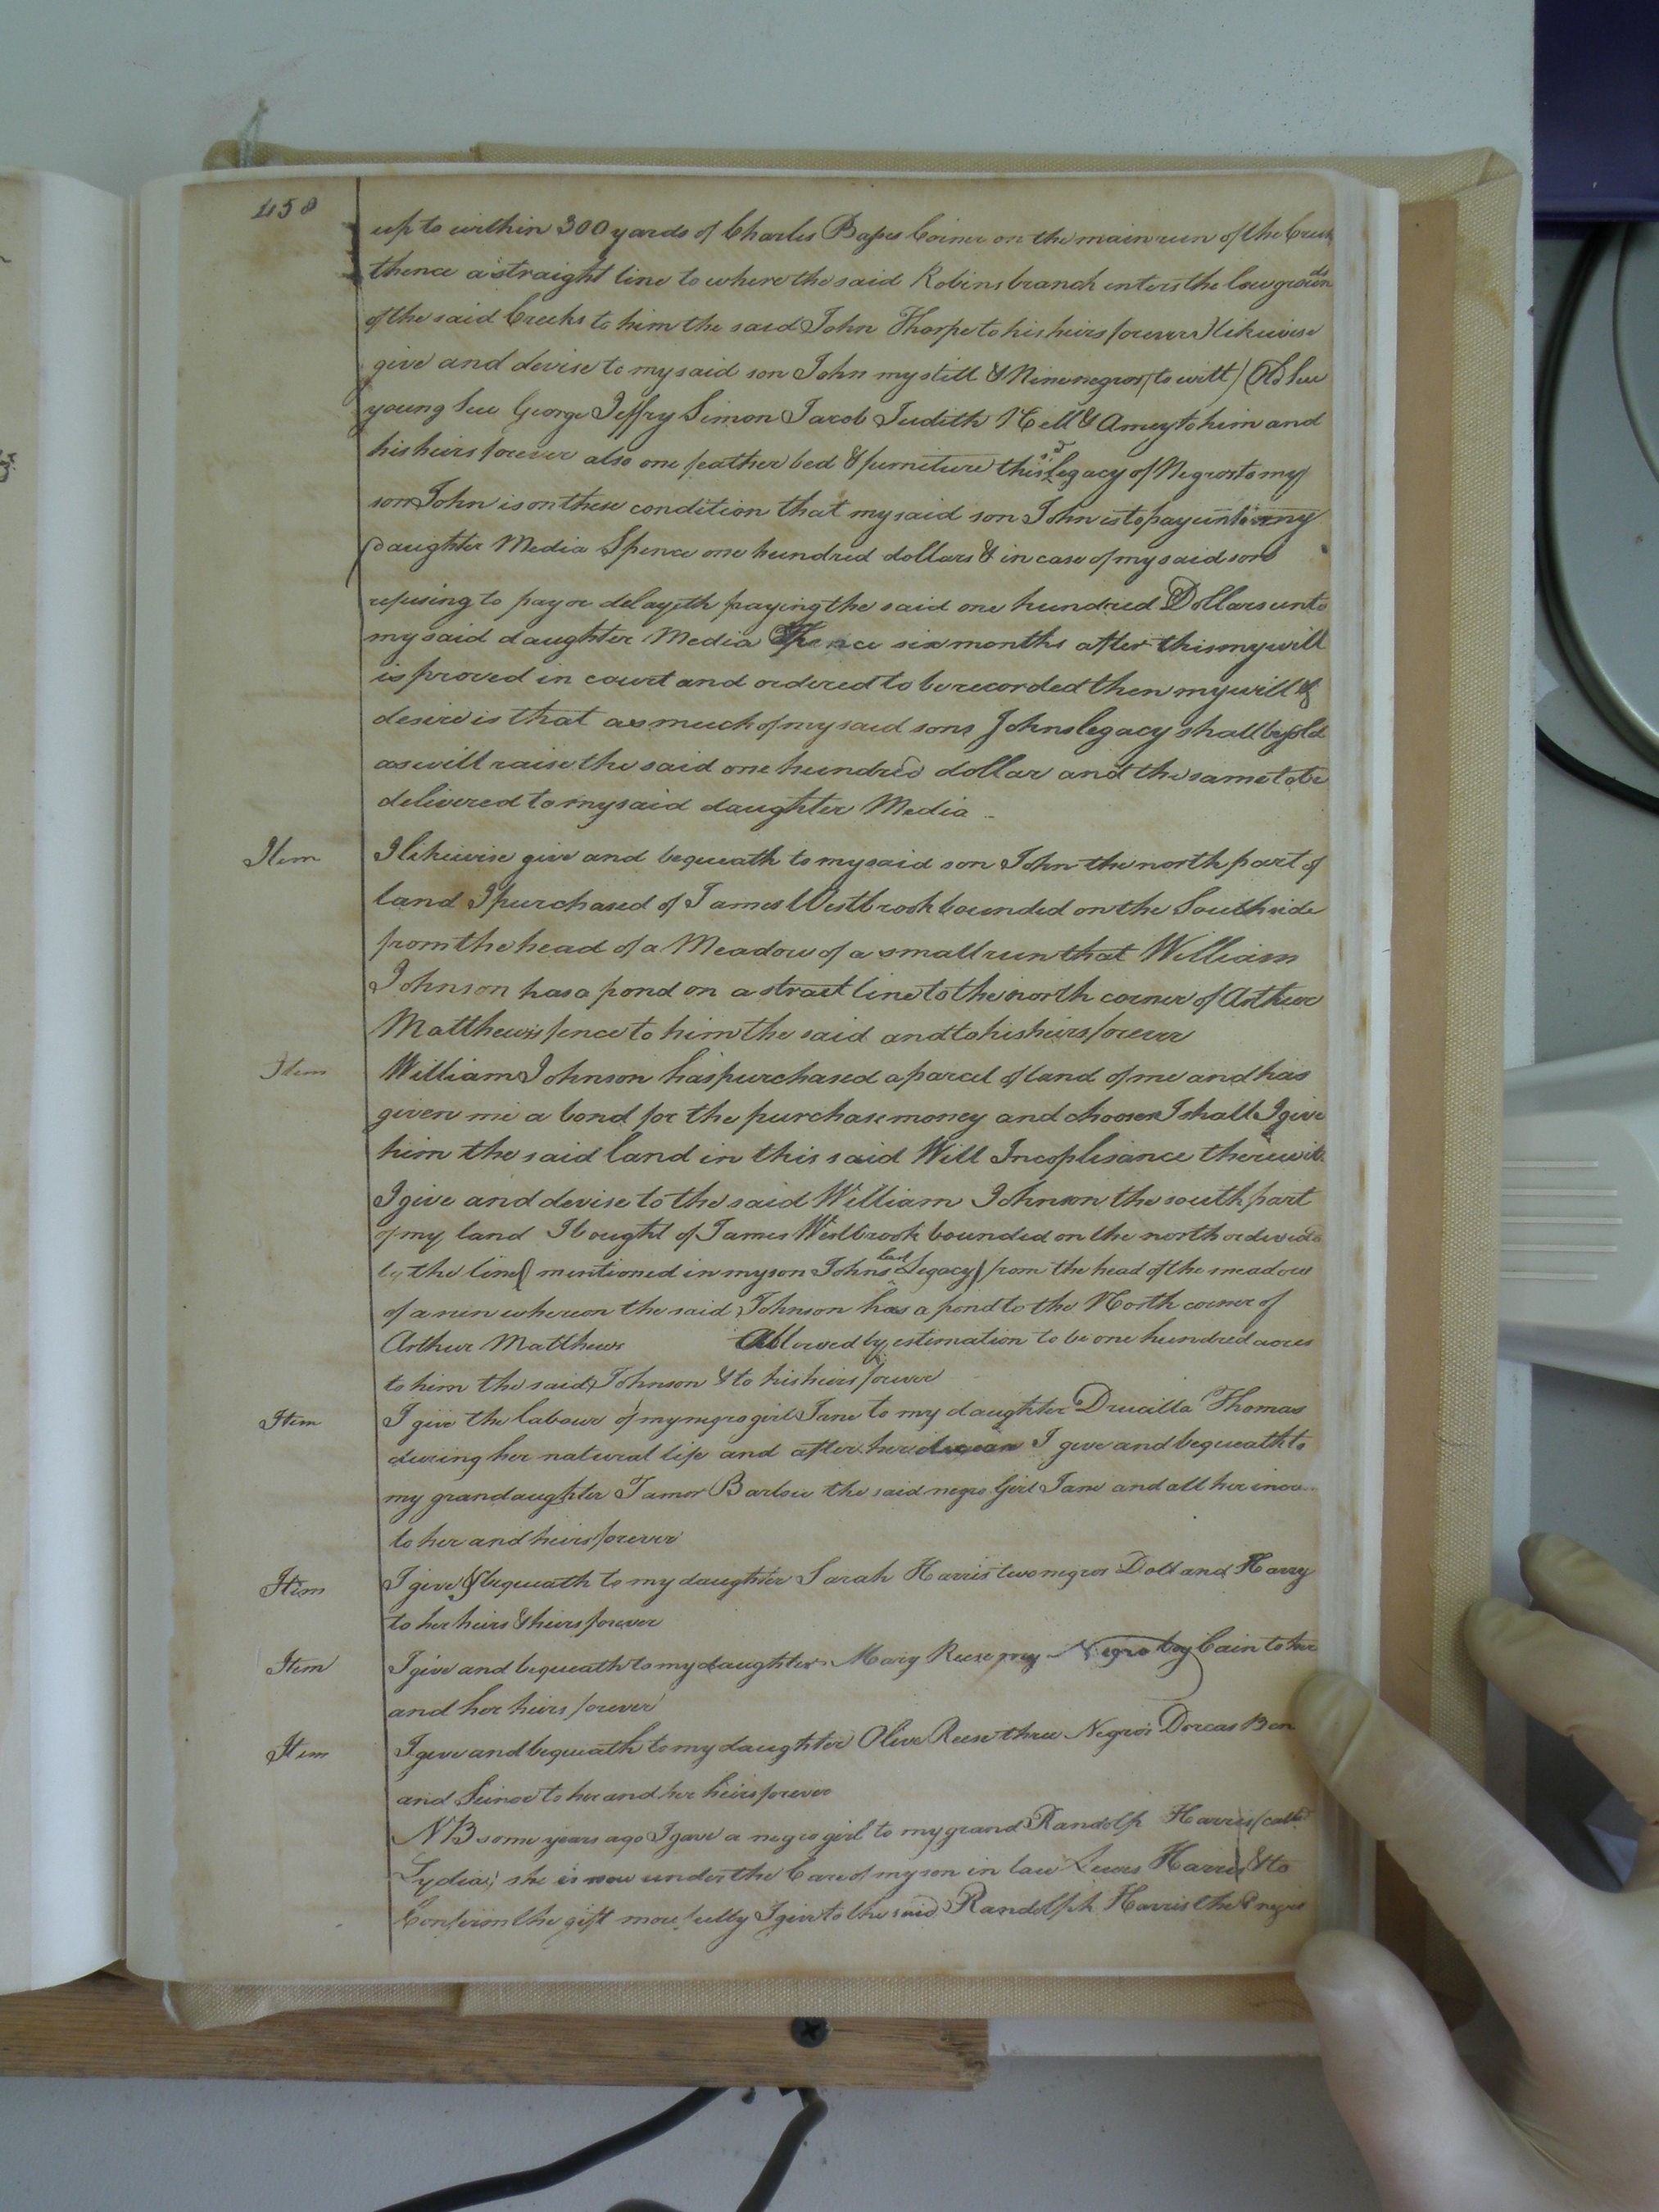 458
up to within 300 yards of Charles Bapes Corner on the main run of the Creek
thence a straight line to where the said Robins branch enters the low grounds
of the said Creeks to him the said John Thorpe to his heirs forever I likewise
give and devise to my said son John my still & Nine negros (to witt) Old Sue
young Sue George Jeffry Simon Jacob Judith Nell & Amey to him and
his heirs forever also one feather bed & furniture this sd Legacy of Negros to my
son John is on these condition that my said son John is to pay unto my
Daughter Media Spence one hundred dollars & in case of my said son
refusing to pay or delayeth paying the said one hundred Dollars unto
my said daughter Media Spence six months after this my will
is proved in court and ordered to be recorded then my will &
desire is that as much of my said sons Johns legacy shall be sold
as will raise the said one hundred dollar and the same to be
delivered to my said daughter Media
Item I likewise give and bequeath to my said son John the north part of
land I purchased of James Westbrook bounded on the South side
from the head of a Meadow of a small run that William
Johnson has a pond on a strait line to the north corner of Arthur
Matthews fence to him the said and to his heirs forever
Item William Johnson has purchased a parcel of land of me and has
given me a bond for the purchase money and chooses I shall I give
him the said land in this said Will Incoplisance therewith
I give and devise to the said William Johnson the south part
of my land I bought of James Westbrook bounded on the north or devided
by the line (mentioned in my son Johns last Legacy) from the head of the meadow
of a run whereon the said Johnson has a pond to the North corner of
Arthur Matthews Allowed by estimation to be one hundred acres
to him the said Johnson & to his heirs forever
Item I give the labour of my negro girl Jane to my daughter Drucilla Thomas
during her natural life and after her I give and bequeath to
my grandaughter Tamor Barlow the said negro Girl Jane and all her
to her and heirs forever
Item I give & bequeath to my daughter Sarah Harris two negros Doll and Harry
to her heirs & heirs forever
Item I give and bequeath to my daughter Mary Reese my Negro boy Cain to her
and her heirs forever
Item I give and bequeath to my daughter Olive Reese three Negros Dorcas Ben
and to her and her heirs forever
NB some years ago I gave a negro girl to my grand Randolph Harris (called
Lydia; she is now under the Care of my son in law Lewis Harris) & to
Confirm the gift more fully I give to the said Randolph Harris the negro